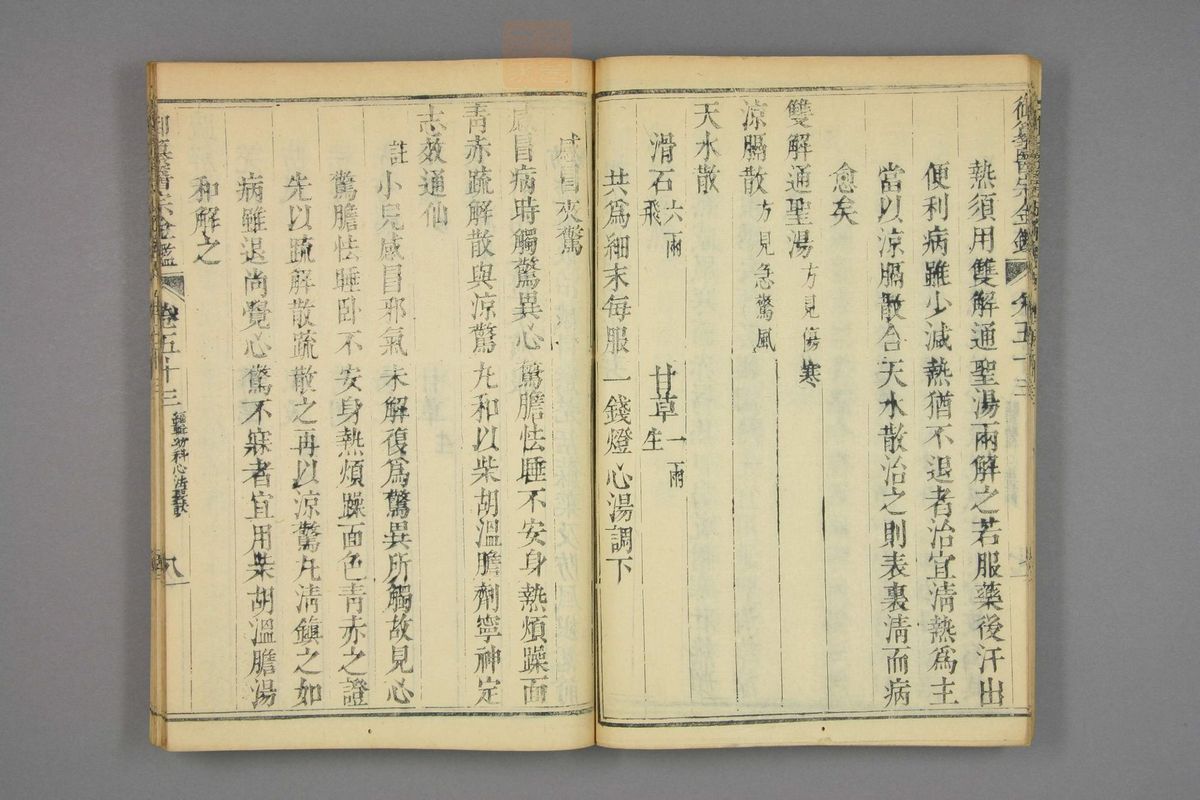 御纂醫宗金鑑 卷五十三
熱須用雙解通聖湯兩解之若服藥後汗出
便利病雖少減熱猶不退者治宜清熱爲主
當以涼膈散合天水散治之則表裏清而病
愈矣
雙解通聖湯 方見傷寒
涼膈散 方見急驚風
天水散
滑石 六兩飛 甘草 一兩生
共爲細末每服一錢燈心湯調下
感冒夾驚
感冒病時觸驚異心驚膽怯睡不安身熱煩躁面
青赤疏解散與涼驚丸和以柴胡溫膽劑寧神定
志效通仙
註小兒感冒邪氣未解復爲驚異所觸故見心
驚膽怯睡卧不安身熱煩躁面色青赤之證
先以疏解散疏散之再以涼驚丸清鎮之如
病雖退尚覺心驚不寐者宜用柴胡溫膽湯
和解之
御纂醫宗金鑑 卷五十三 編輯幼科心法要訣 八